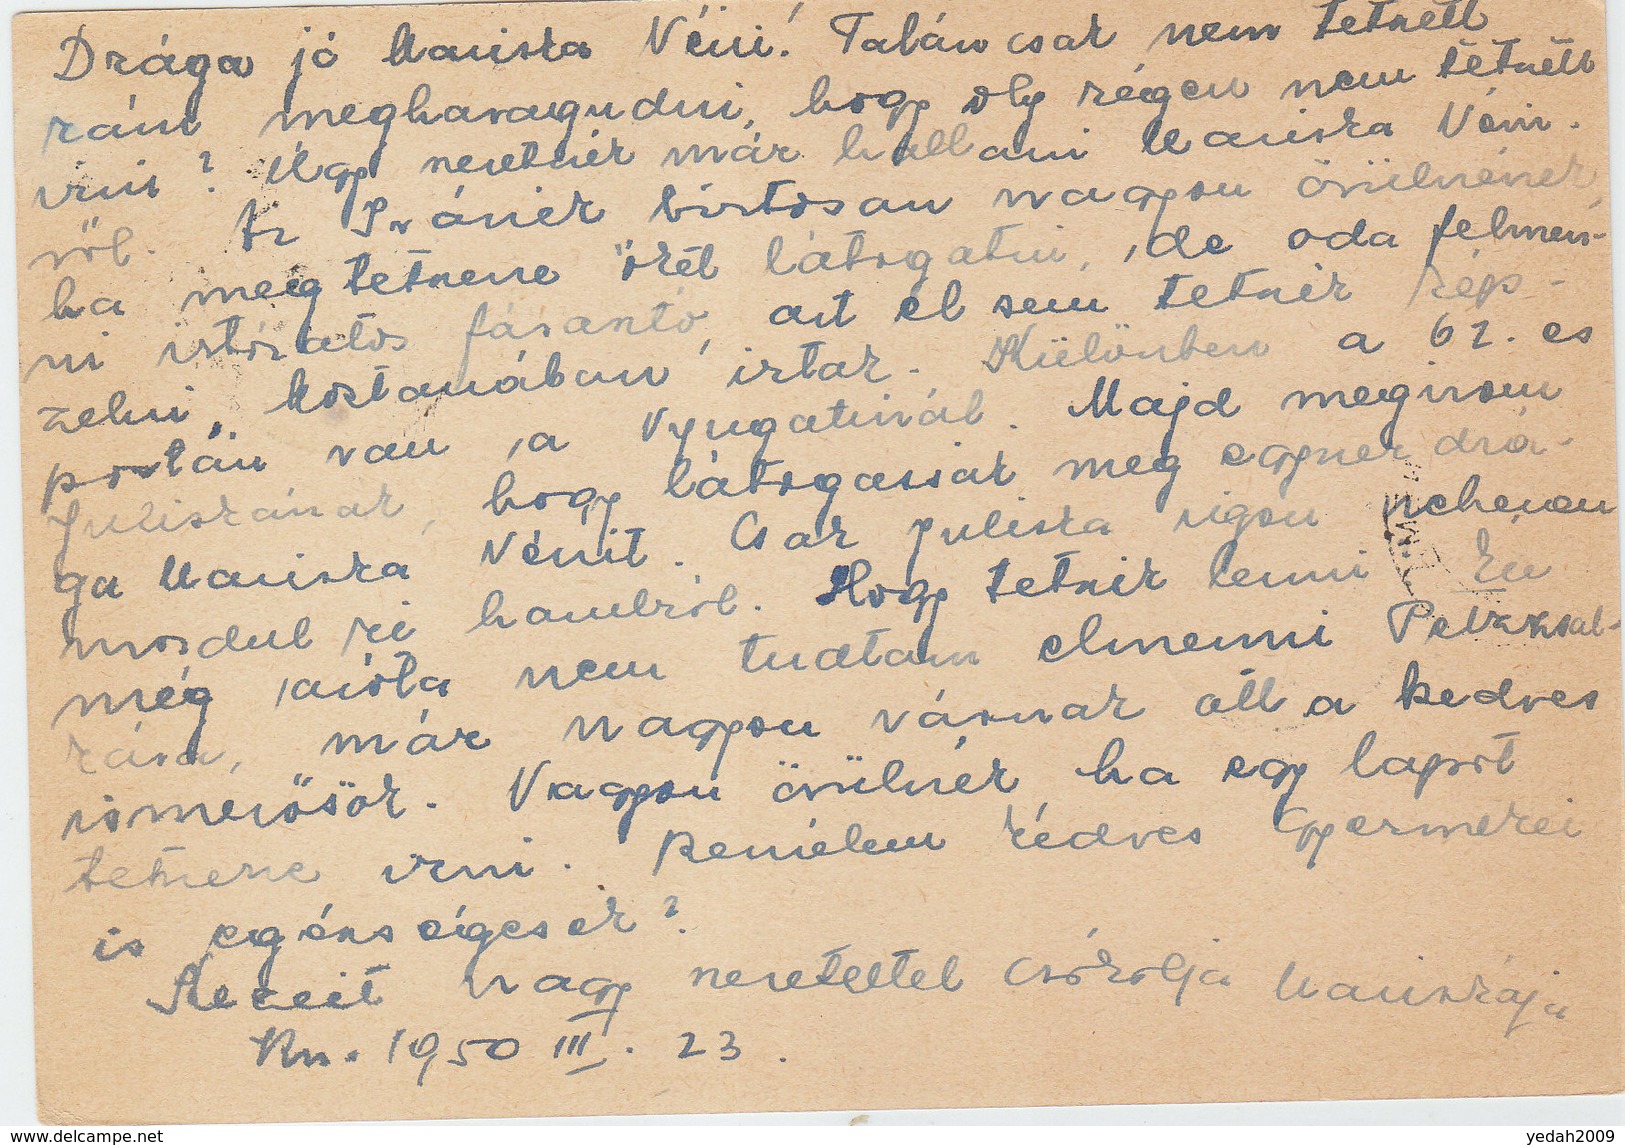 Drága jó Mariska Néni! Talán csak nem tetszett
rám megharagudni, hogy oly régen nem tetszett
írni? Úgy szeretnék már hallani Mariska Néni-
ről. Az Ivániék biztosan nagyon örülnének,
ha meg tetszene őket látogatni, de oda felmen-
ni iszónyatos fárasztó, azt el sem tetszik kép-
zelni, mostanában írtak. Különben a 62. es
postán van, a Nyugatinál. Majd megírom
Juliskának, hogy látogassák meg egyszer drá-
ga Mariska Nénit. Csak Juliska igen nehezen
mozdul ki hazulról. Hogy tetszik lenni? Én
még azóta nem tudtam elmenni
már nagyon várnak ott a kedves
ismerősök. Nagyon örülnék ha egy lapot
tetszene írni. Remélem kedves Gyermekei
is egészségesek?
Kezeit nagy szeretettel csókolja Mariskája
1950 III. 23.
yedah2009